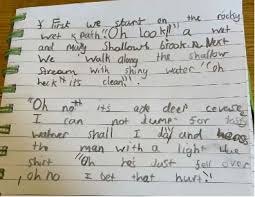 First we start on the rocky
wet path "Oh look!" a wet
and mossy shallow brook. Next
We walk along the shallow
stream with shiny water "oh
heck" its clean."
"Oh no" its a deep
I can not dump for
shall I day and
the man with a light blue
shirt "Oh he's Just fell over
, oh no I bet that hurt"